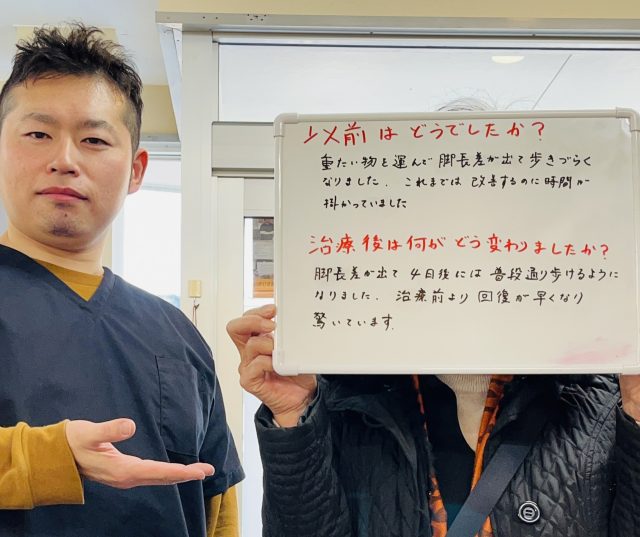 以前はどうでしたか?
重たい物を運んで脚長差が出て歩きづらく
なりました. これまでは改善するのに時間が
掛かっていました
治療後は何がどう変わりましたか?
脚長差が出て4日後には普段通り歩けるように
なりました. 治療前より回復が早くなり
驚いています.